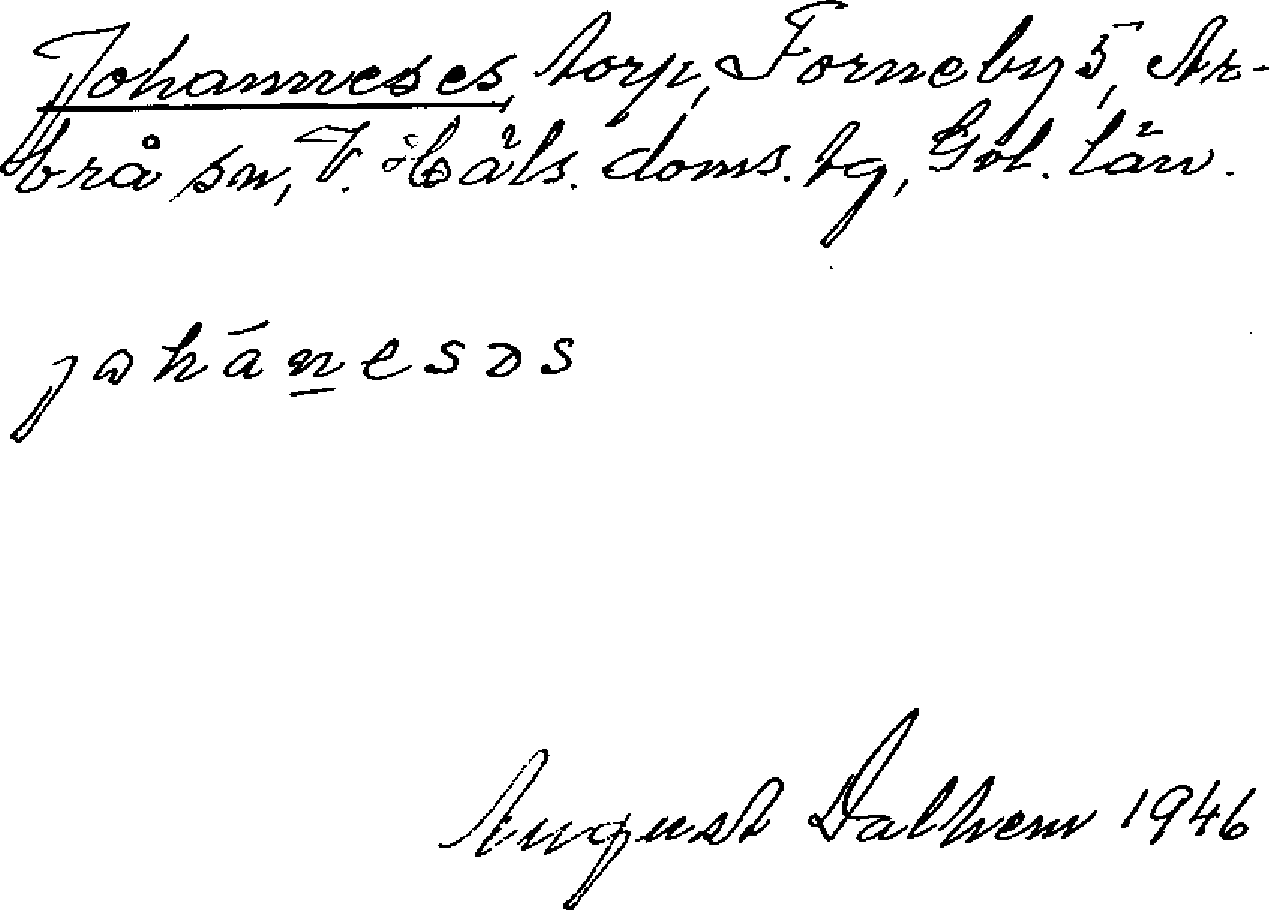 Johanneses, torp, Forneby 5, Ar-
brå sn, V. Häls. doms. tg, Gvl. län.
johánesəs
August Dalhem 1946